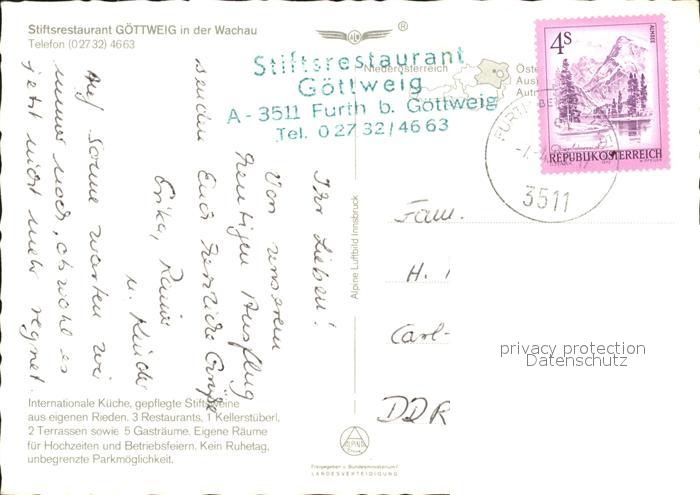 Stiftsrestaurant GÖTTWEIG in der Wachau
Telefon (0 27 32) 46 63
Stiftsrestaurant
Göttweig
A - 3511 Furth b. Göttweig
Tel. 0 27 32 / 46 63
Niederösterreich
4S
ALMSEE
REPUBLIK ÖSTERREICH
3511
Ihr Lieben!
Von unserem
heutigen Ausflug
senden Euch herzliche Grüße
Erika, Rainer
u. Kinder
Auf Sonne warten wir
immer noch, obwohl es
jetzt nicht mehr regnet.
Alpine Luftbild Innsbruck
Fam.
H.
Carl-
DDR
privacy protection
Datenschutz
Internationale Küche, gepflegte Stiftsweine
aus eigenen Rieden. 3 Restaurants, 1 Kellerstüberl,
2 Terrassen sowie 5 Gasträume. Eigene Räume
für Hochzeiten und Betriebsfeiern. Kein Ruhetag,
unbegrenzte Parkmöglichkeit.
ALPINE
Freigegeben v. Bundesministerium f.
LANDESVERTEIDIGUNG